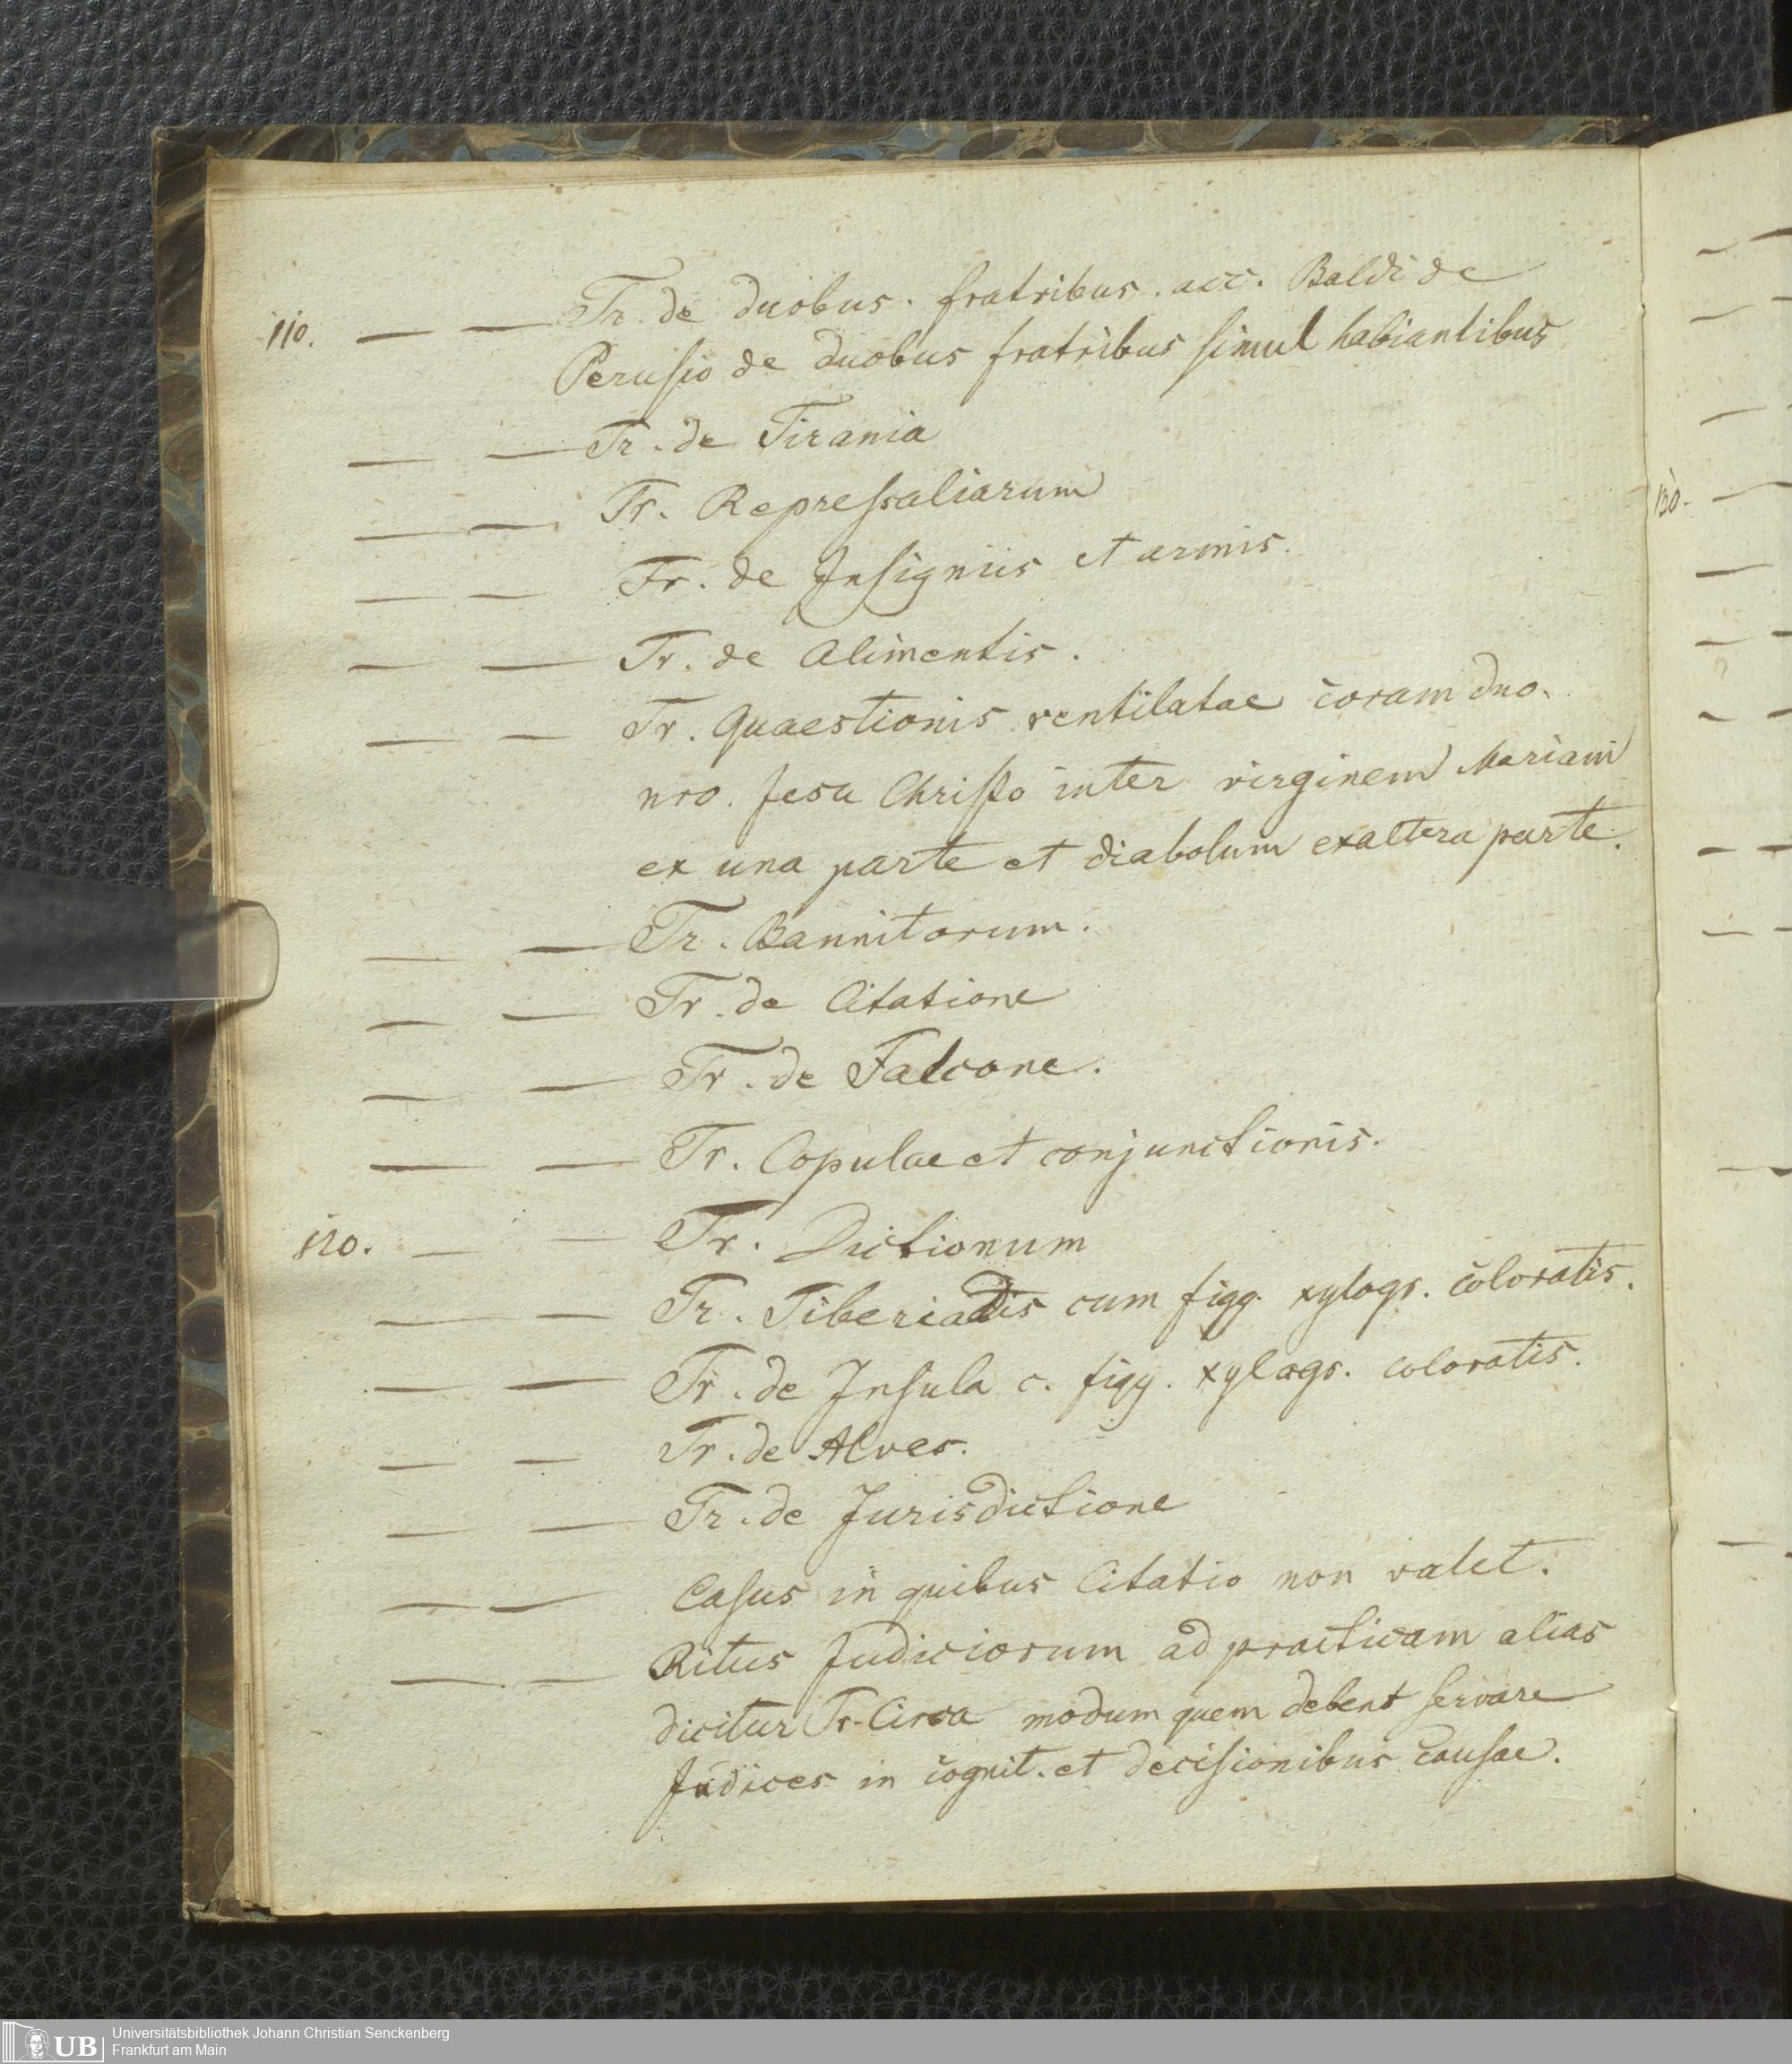 110. — — Tr. de duobus. fratribus. acc. Baldi de
Perusio de duobus fratribus simul habiantibus
— — Tr. de Tirania
— — Tr. Repressaliarum
— — Tr. de Insigniis et armis.
— — Tr. de Alimentis.
— — Tr. Quaestionis ventilatae coram dno.
nro. Jesu Christo inter virginem Mariam
ex una parte et diabolum ex altera parte.
— — Tr. Bannitorum.
— — Tr. de Citatione
— — Tr. de Falcone.
— — Tr. Copulae et conjunctionis.
120. — — Tr. Dictionum
— — Tr. Tiberiadis cum figg. xylogr. coloratis.
— — Tr. de Insula c. figg. xylogr. coloratis.
— — Tr. de Alveo.
— — Tr. de Jurisdictione
— — Casus in quibus Citatio non valet.
— — Ritus Judiciorum ad practicam alias
dicitur Tr. Circa modum quem debent servare
Judices in cognit. et decisionibus Causae.
130.
UB
Universitätsbibliothek Johann Christian Senckenberg
Frankfurt am Main